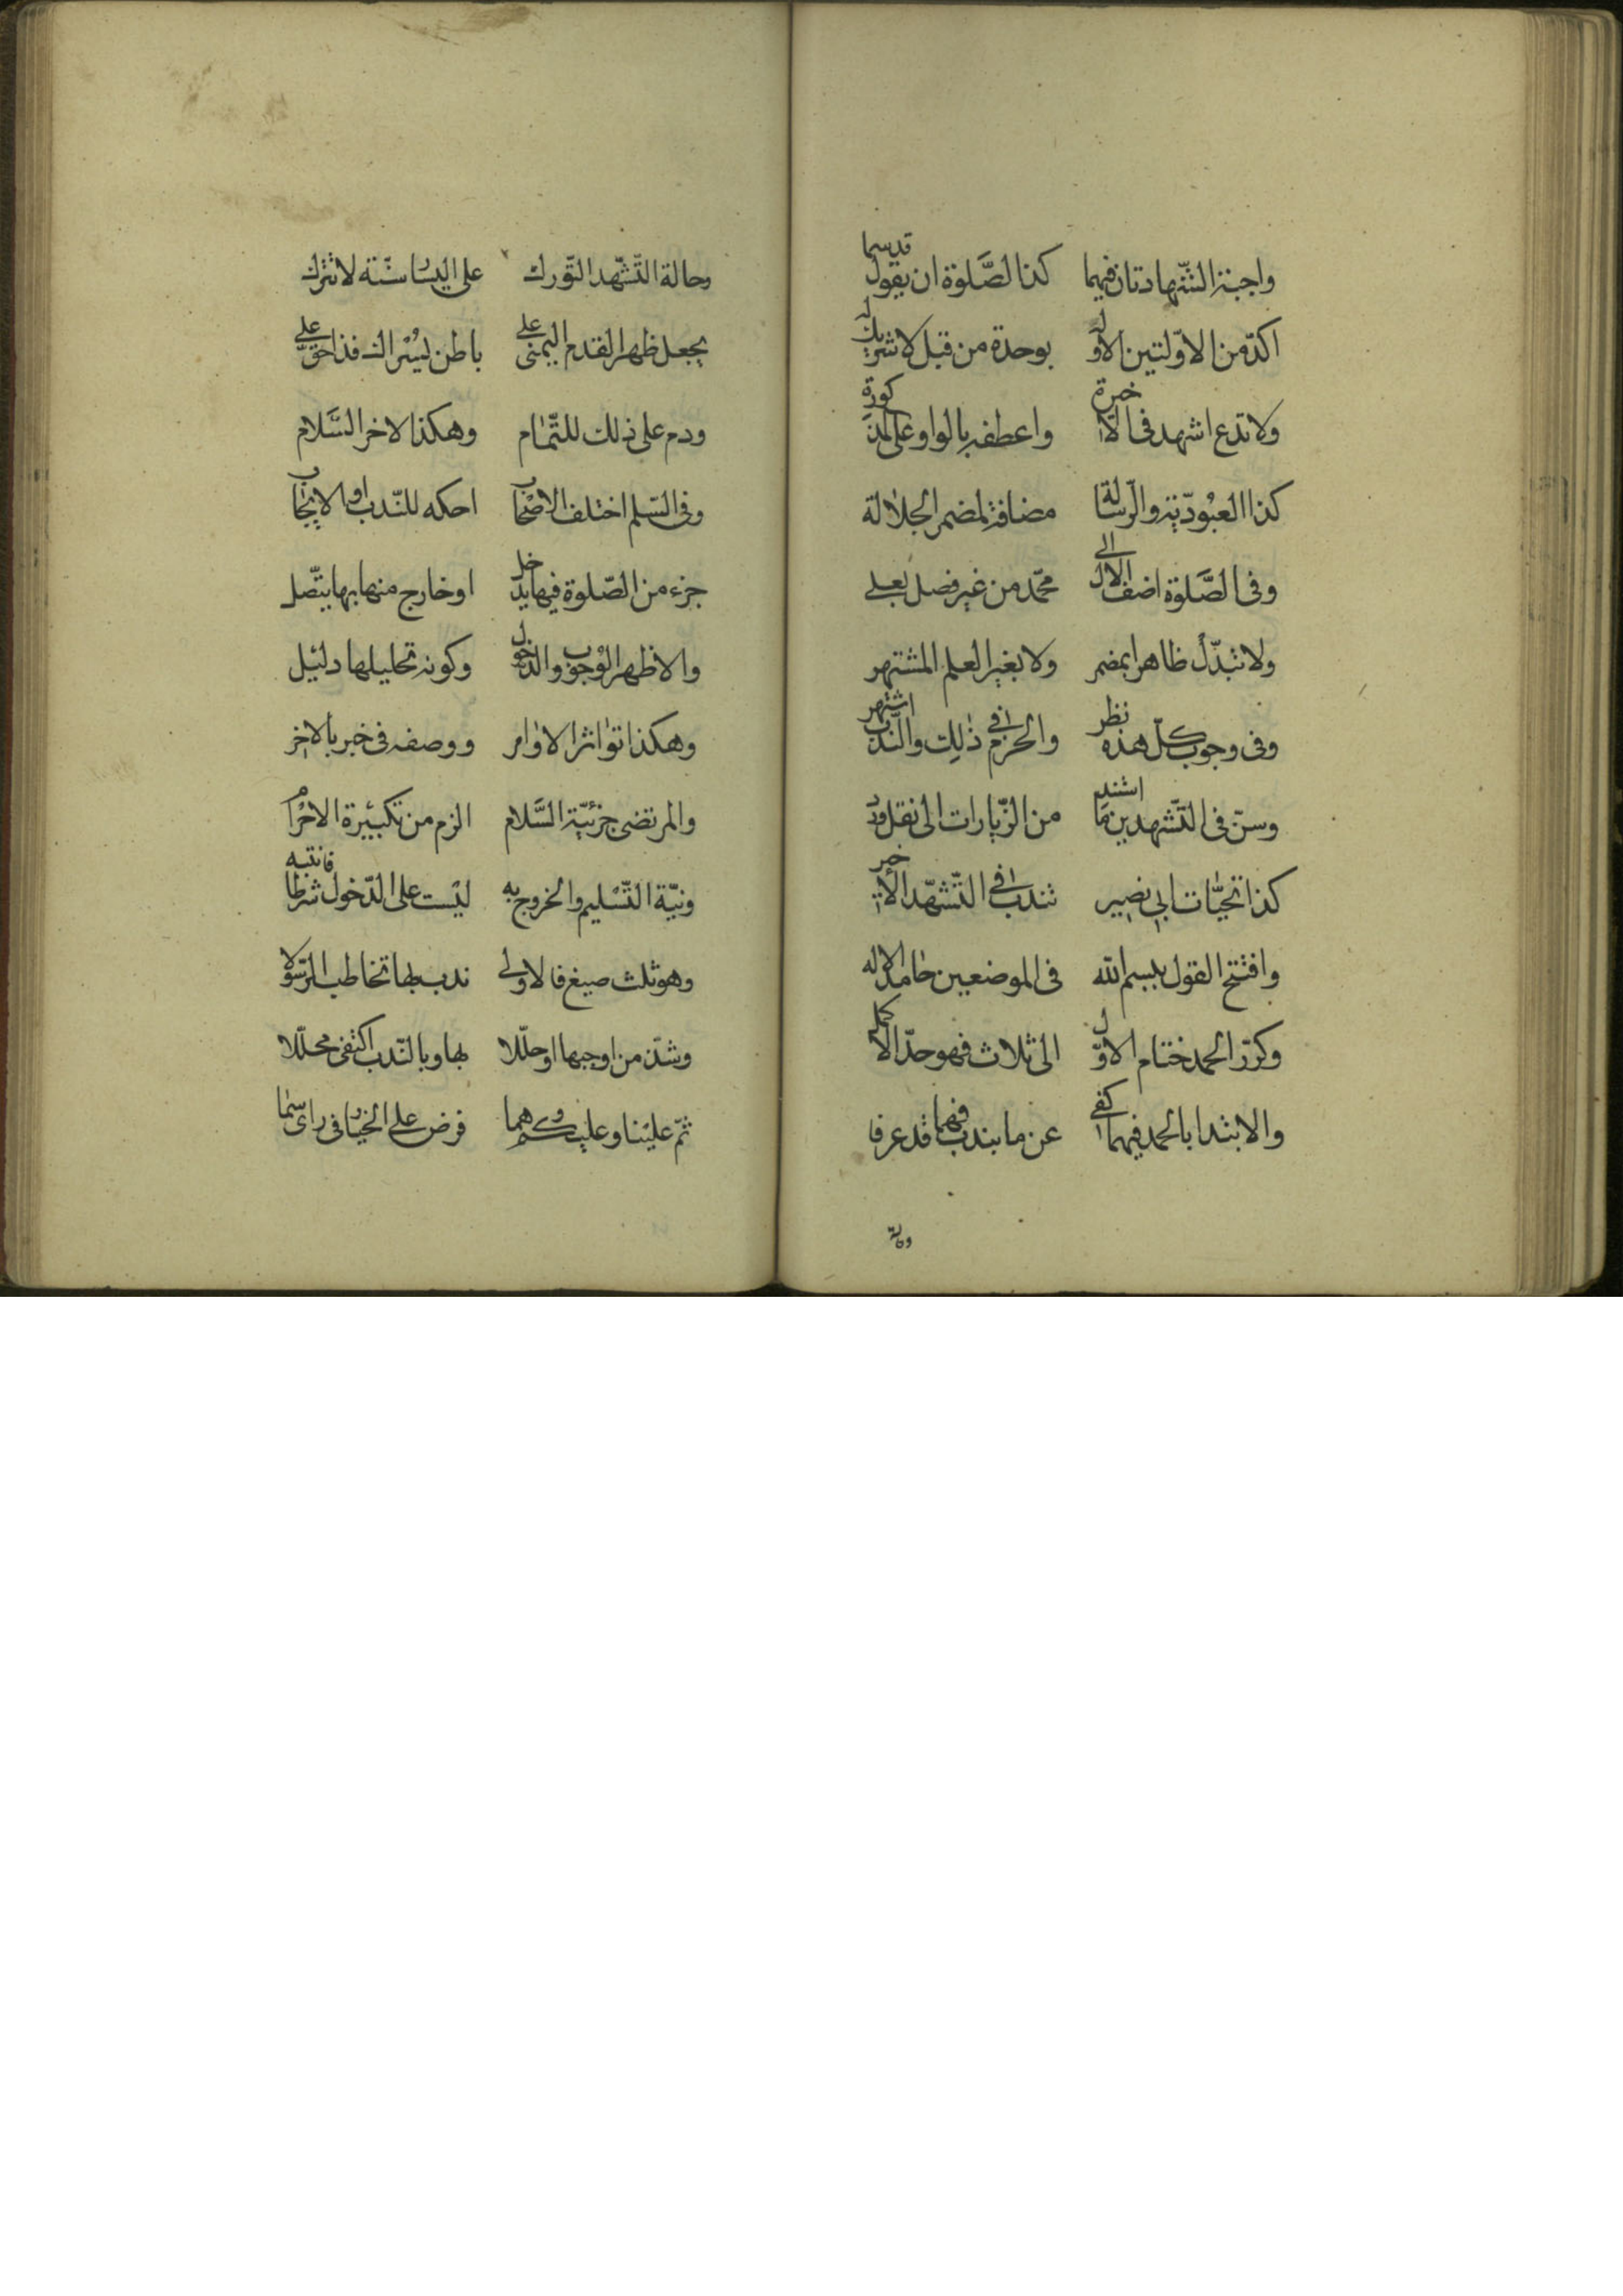 واجبة الشّهادتان فيهما كذا الصّلوة ان يقول قدسما
اكدّ من الاوّلتين الاوله بوحدة من قبل لا شريك له
ولا تدع اشهد فى الاخيرة واعطفه بالواو على المذكورة
كذا العبُودّية والرّسالة مضافة لمضمر الجلالة
وفى الصَّلوة اضف الال الى محمّد من غير فصل بعلى
ولا تبدّل ظاهرا بمضمر ولا بغير العلم المشتهر
وفى وجوب كلّ هذه نظر والحزم فى ذلِك والنّدب اشتهر
وسنّ فى التّشهدين ما اشتد من الزّيارات الى نقل ورد
كذا تحيّات ابى بصير تندب فى التّشهّد الأخير
وافتتح القول ببسم الله فى الموضعين حامد الاله
وكرّر الحمد ختام الاوّل الى ثلاث فهو حدّ الاكمل
والابتدا بالحمد فيهما كفى عن ما يندب فيهما قد عرفا
وحالة
وحالة التّشّهد التّورك على اليسار سنّة لا تترك
يجعل ظهر القدم اليمنى على باطن يُسْراه فذا حق على
ودم على ذلك للتّمام وهكذا لاخر السَّلام
وفى السّلم اختلف الاصْحاب احكه للنّدب او الايجاب
جزء من الصّلوة فيها يدخل او خارج منها بها يتّصل
والاظهر الوْجوب والدّخول وكونه تحليلها دليْل
وهكذا تواتر الاوامر ووصفه فى خبر بالاخر
والمرتضى جزئيّة السَّلام الزم من تكبيْرة الاحْرام
ونيّة التّسْليم والخروج به ليْست على الدّخول شرطا فانتبه
وهو ثلث صيغ فالاولى ندب بها تخاطب الرّسولا
وشذّ من اوجبها او حلّلا بها وبالنّدب اكتفى محلّلا
ثمّ عليْنا وعليكم وهما فرض على الخيار فى راى سما